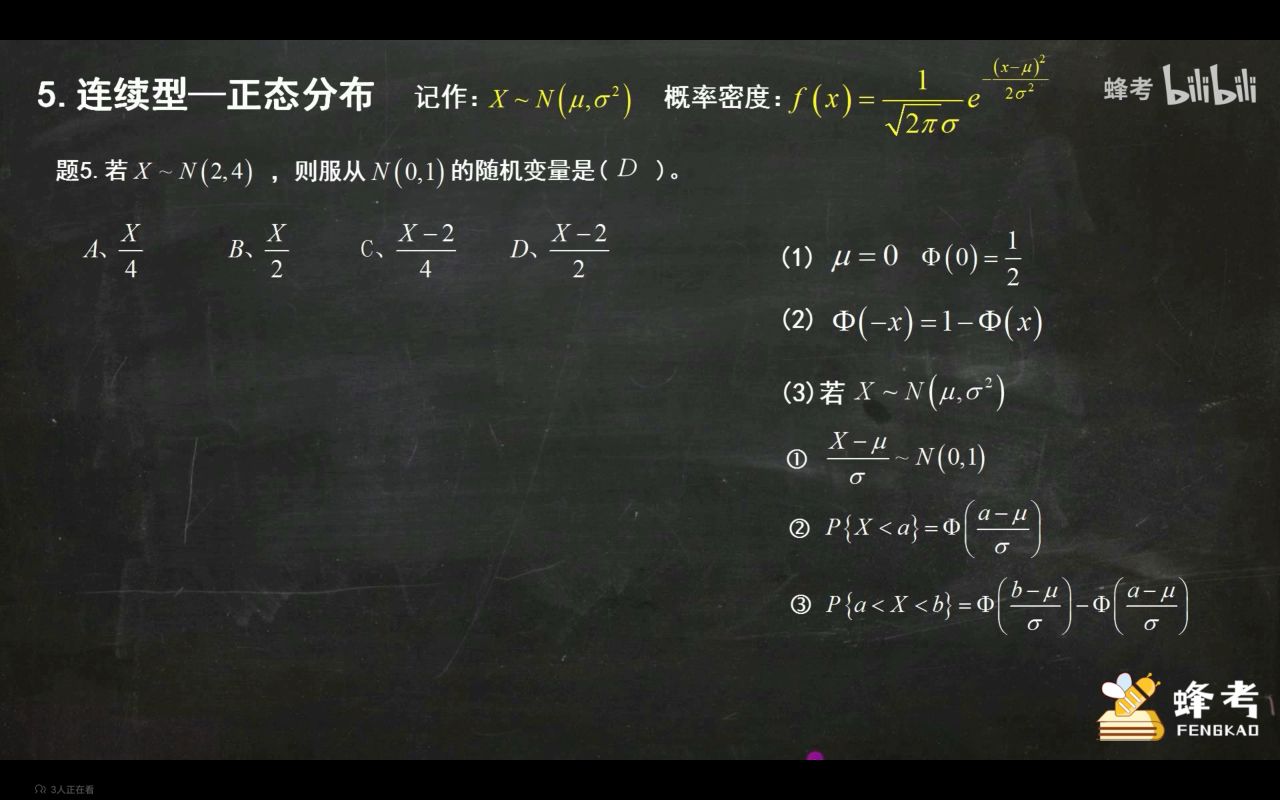 5.连续型—正态分布 记作：X ~ N(μ,σ²) 概率密度：f(x)=\frac{1}{\sqrt{2π}σ}e^{-\frac{(x-μ)^2}{2σ^2}}
蜂考 bilibili
题5.若 X ~ N(2,4) ，则服从 N(0,1) 的随机变量是( D )。
A、\frac{X}{4} B、\frac{X}{2} C、\frac{X-2}{4} D、\frac{X-2}{2}
(1) μ=0 Φ(0)=\frac{1}{2}
(2) Φ(-x)=1-Φ(x)
(3)若 X ~ N(μ,σ²)
① \frac{X-μ}{σ} ~ N(0,1)
② P{X<a}=Φ(\frac{a-μ}{σ})
③ P{a<X<b}=Φ(\frac{b-μ}{σ})-Φ(\frac{a-μ}{σ})
蜂考
FENGKAO
3人正在看